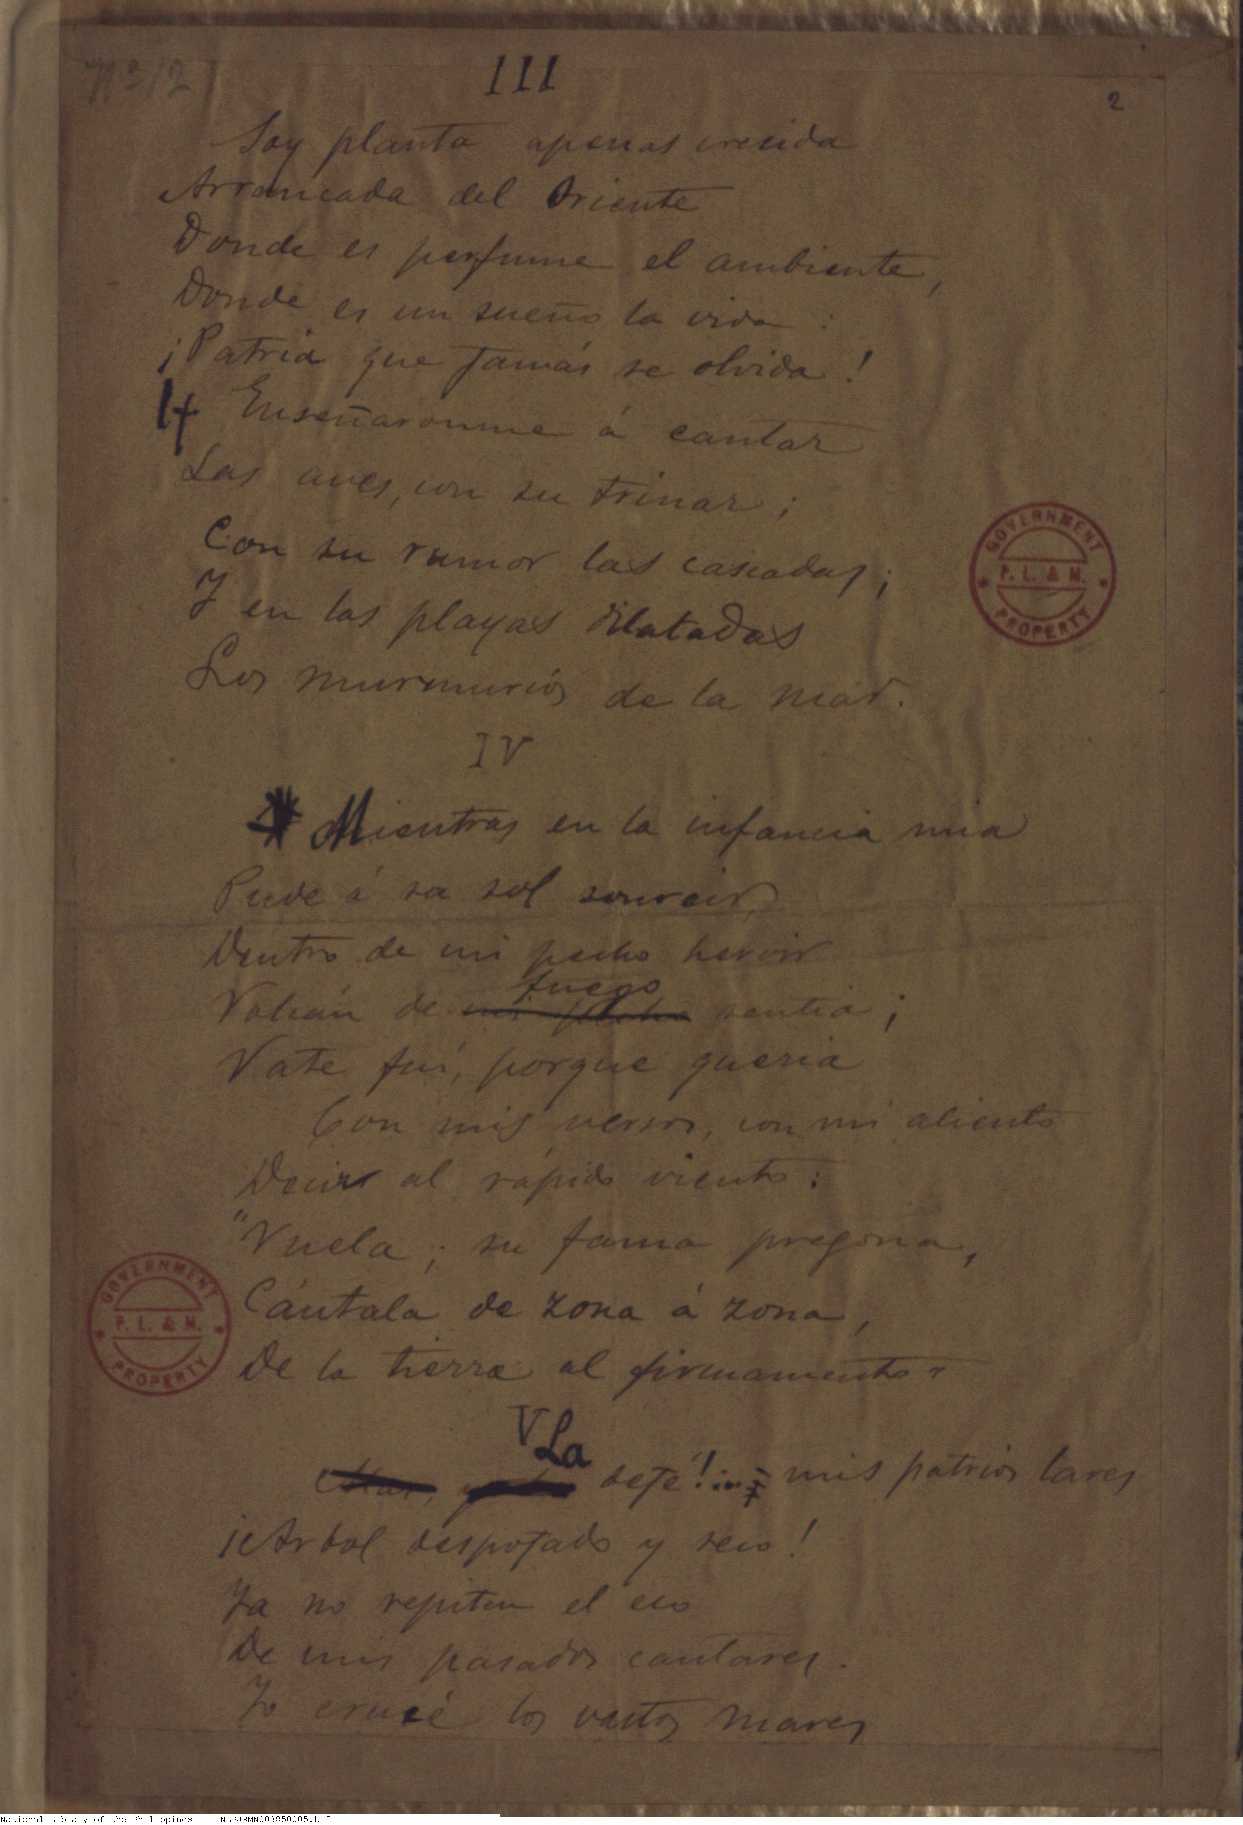 Nº 12
III
2
Soy planta apenas crecida
Arrancada del Oriente
Donde es perfume el ambiente,
Donde es un sueño la vida:
¡Patria que jamás se olvida!
Enseñaronme á cantar
Las aves, con su trinar;
Con su rumor las cascadas;
Y en las playas dilatadas
Los murmurios de la mar.
IV
Mientras en la infancia mia
Pude á su sol sonreir,
Dentro de mi pecho hervir
fuego
Volcán de sentia;
Vate fuí, porque queria
Con mis versos, con mi aliento
Decir al rápido viento:
"Vuela; su fama pregona,
Cántala de zona á zona,
De la tierra al firmamento"
V
La dejé! mis patrios lares
¡Arbol despojado y seco!
Ya no repiten el eco
De mis pasados cantares.
Yo crucé los vastos mares
GOVERNMENT
P. L. & M.
PROPERTY
GOVERNMENT
P. L. & M.
PROPERTY
National Library of the Philippines